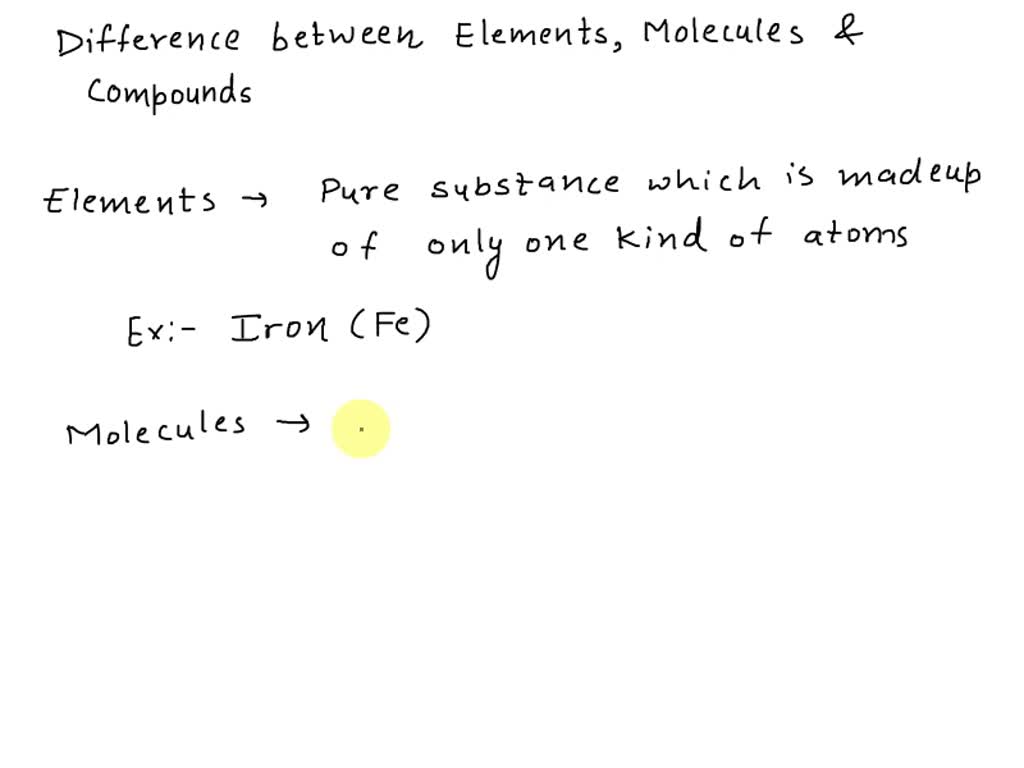 Difference between Elements, Molecules &
Compounds
Elements → Pure substance which is madeup
of only one kind of atoms
Ex:- Iron (Fe)
Molecules →